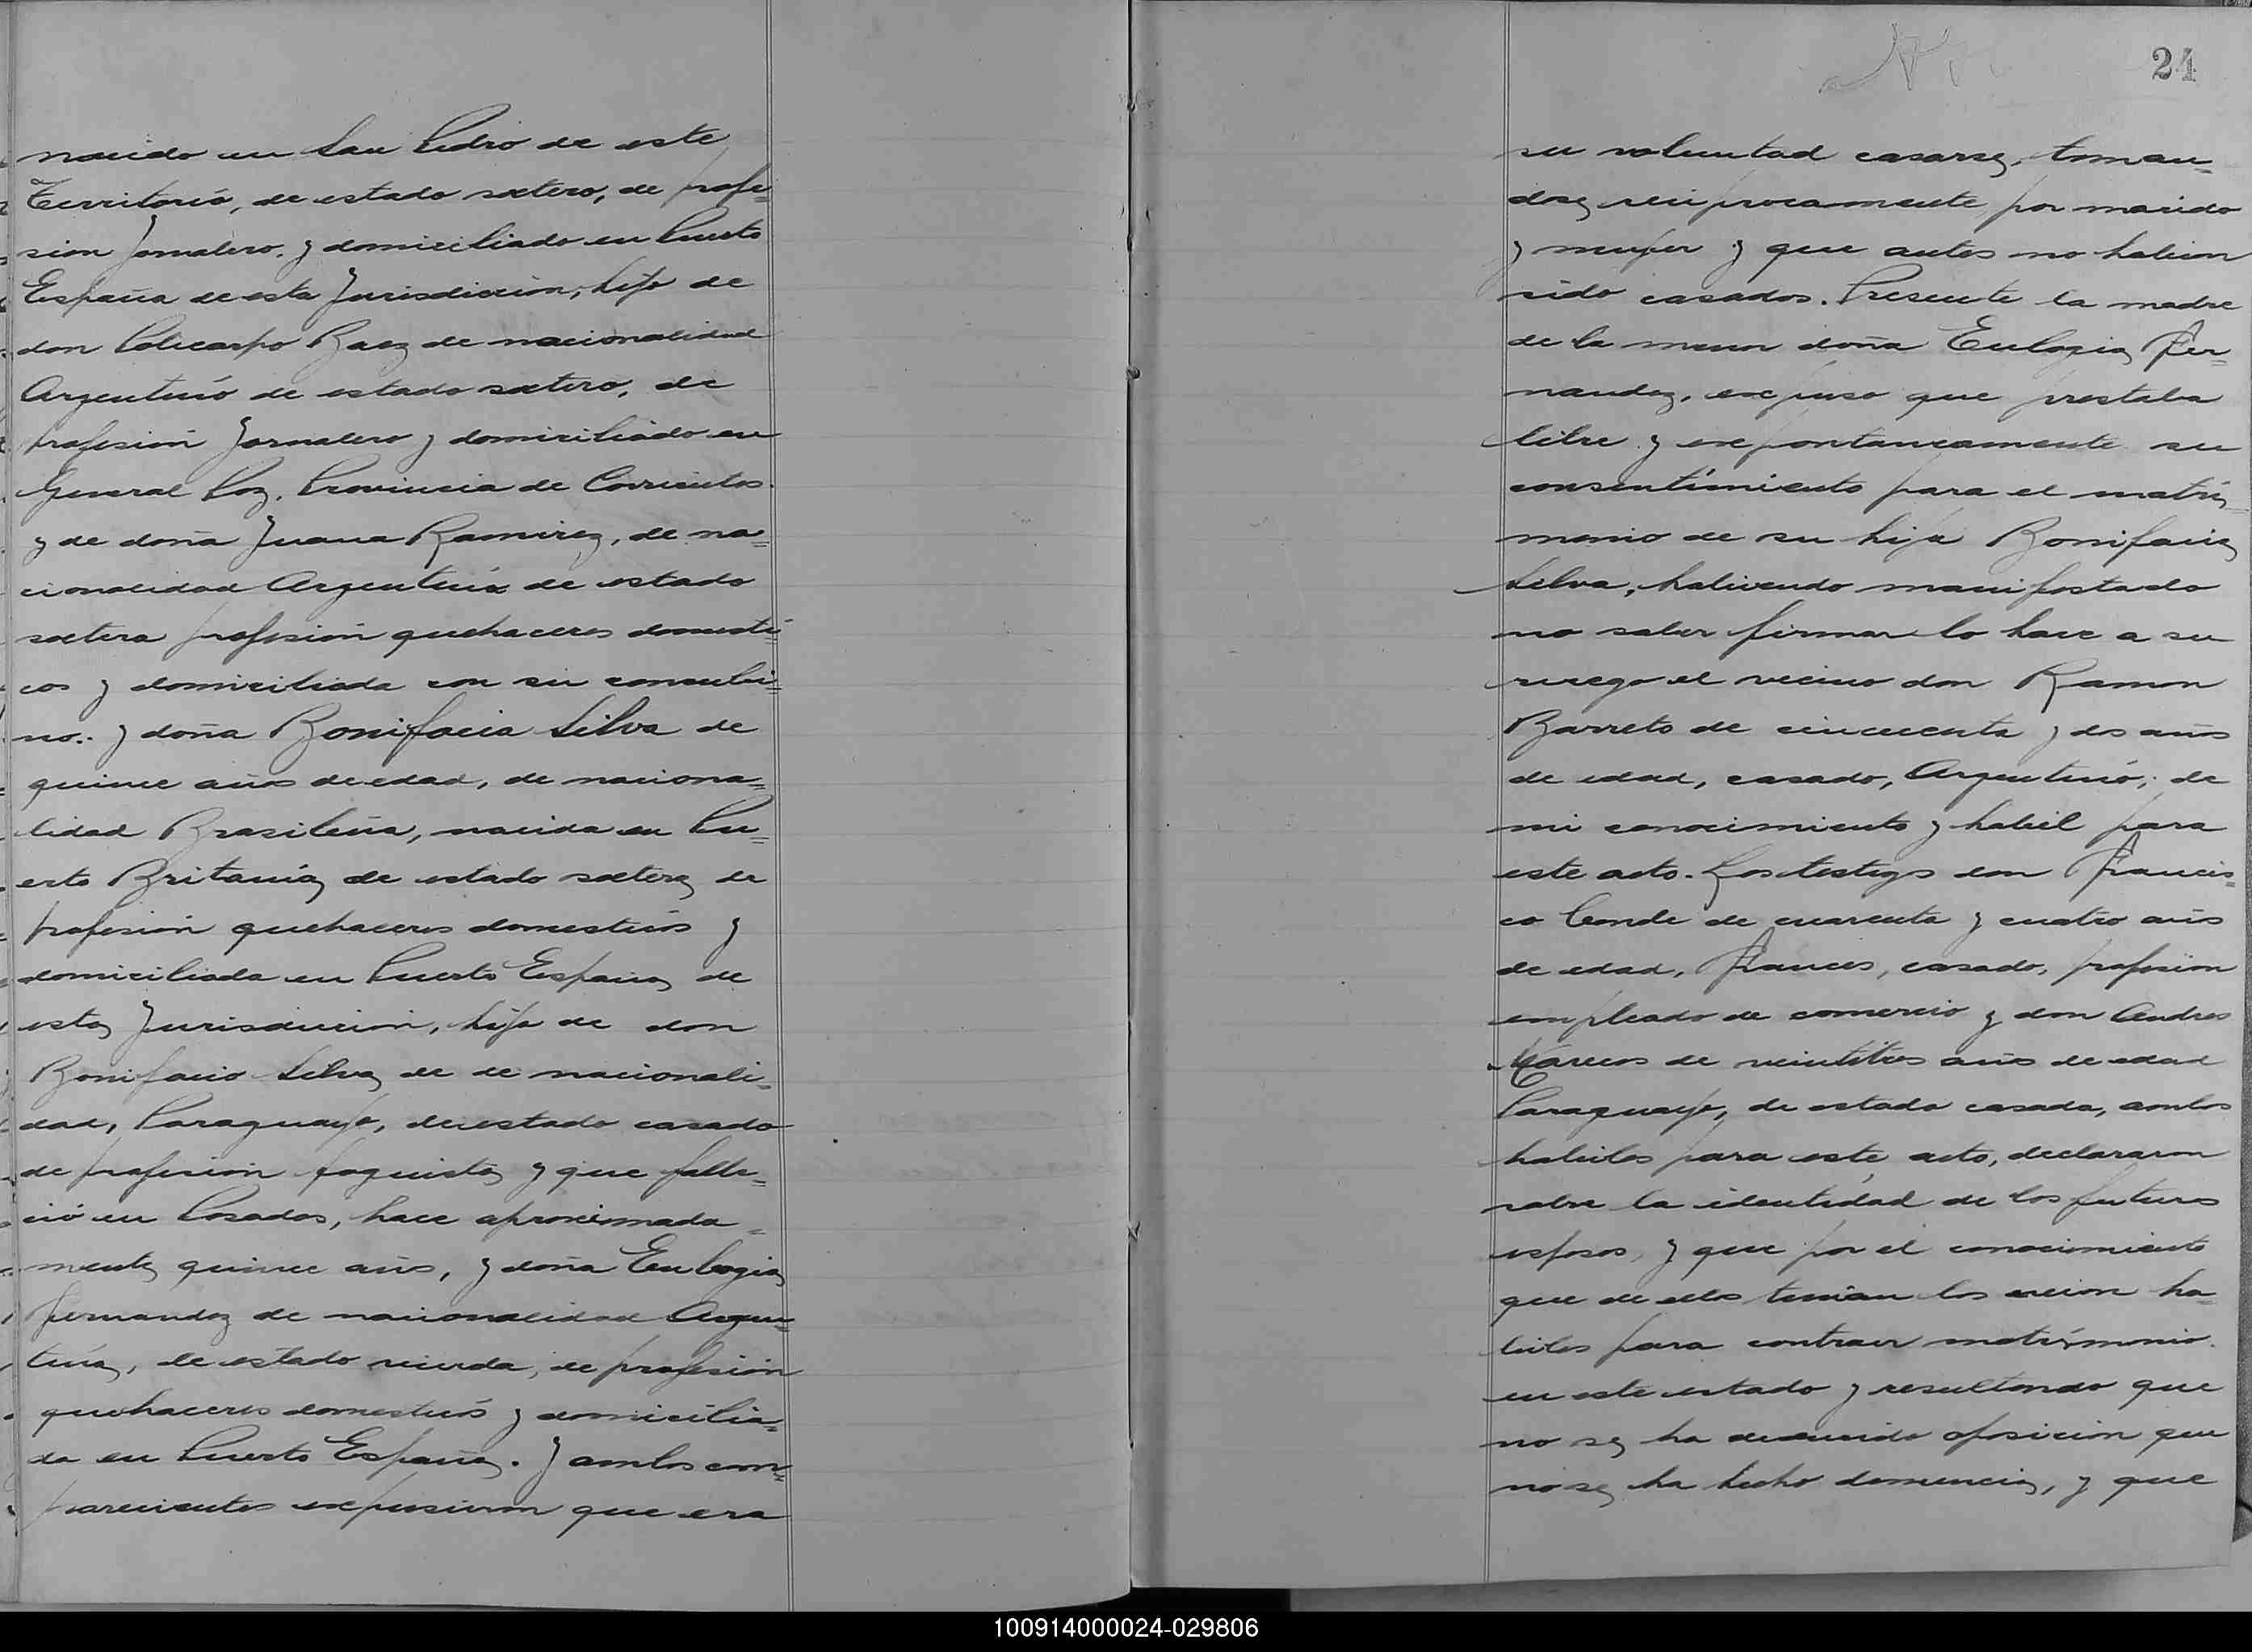 nacido en San Pedro de este
Territorio, de estado soltero, de profe=
sion Jornalero. y domiciliado en Puerto
España de esta Jurisdiccion, hijo de
don Policarpo Baez de nacionalidad
Argentino de estado soltero, de
profesión Jornalero y domiciliado en
General Paz. Provincia de Corrientes.
y de doña Juana Ramirez, de na=
cionalidad Argentina de estado
soltera profesión quehaceres domesti=
cos y domiciliada con su concubi=
no.. y doña Bonifacia Silva de
quince años de edad, de naciona=
lidad Brasileña, nacida en Pu=
erto Britania de estado soltera de
profesión quehaceres domesticos y
domiciliada en Puerto España de
esta Jurisdiccion, hija de don
Bonifacio Silva de de nacionali=
dad, Paraguayo, de estado casado
de profesion foguista y que falle=
ció en Posadas, hace aproximada=
mente quince años, y doña Eulogia
Fernandez de nacionalidad Argen=
tina, de estado viuda, de profesión
quehaceres domesticos y domicilia=
da en Puerto España. Y ambos com=
parecientes expusieron que era
24
su voluntad casarse, toman=
dose reciprocamente por marido
y mujer y que antes no habian
sido casados. Presente la madre
de la menor doña Eulogia Fer=
nandez, expuso que prestaba
libre y expontaneamente su
consentimiento para el matri=
monio de su hija Bonifacia
Silva, habiendo manifestado
no saber firmar lo hace a su
ruego el vecino don Ramon
Barreto de cincuenta y dos años
de edad, casado, Argentino, de
mi conocimiento y habil para
este acto. Los testigos don Francis=
co Conde de cuarenta y cuatro años
de edad, Frances, casado, profesion
empleado de comercio y don Andres
de veintitres años de edad
Paraguayo, de estado casado, ambos
habiles para este acto, declararon
sobre la identidad de los futuros
esposos, y que por el conocimiento
que de ellos tenian los creion ha=
biles para contraer matrimonio.
en este estado y resultando que
no se ha deducido oposicion que
no se ha hecho denuncia, y que
100914000024-029806